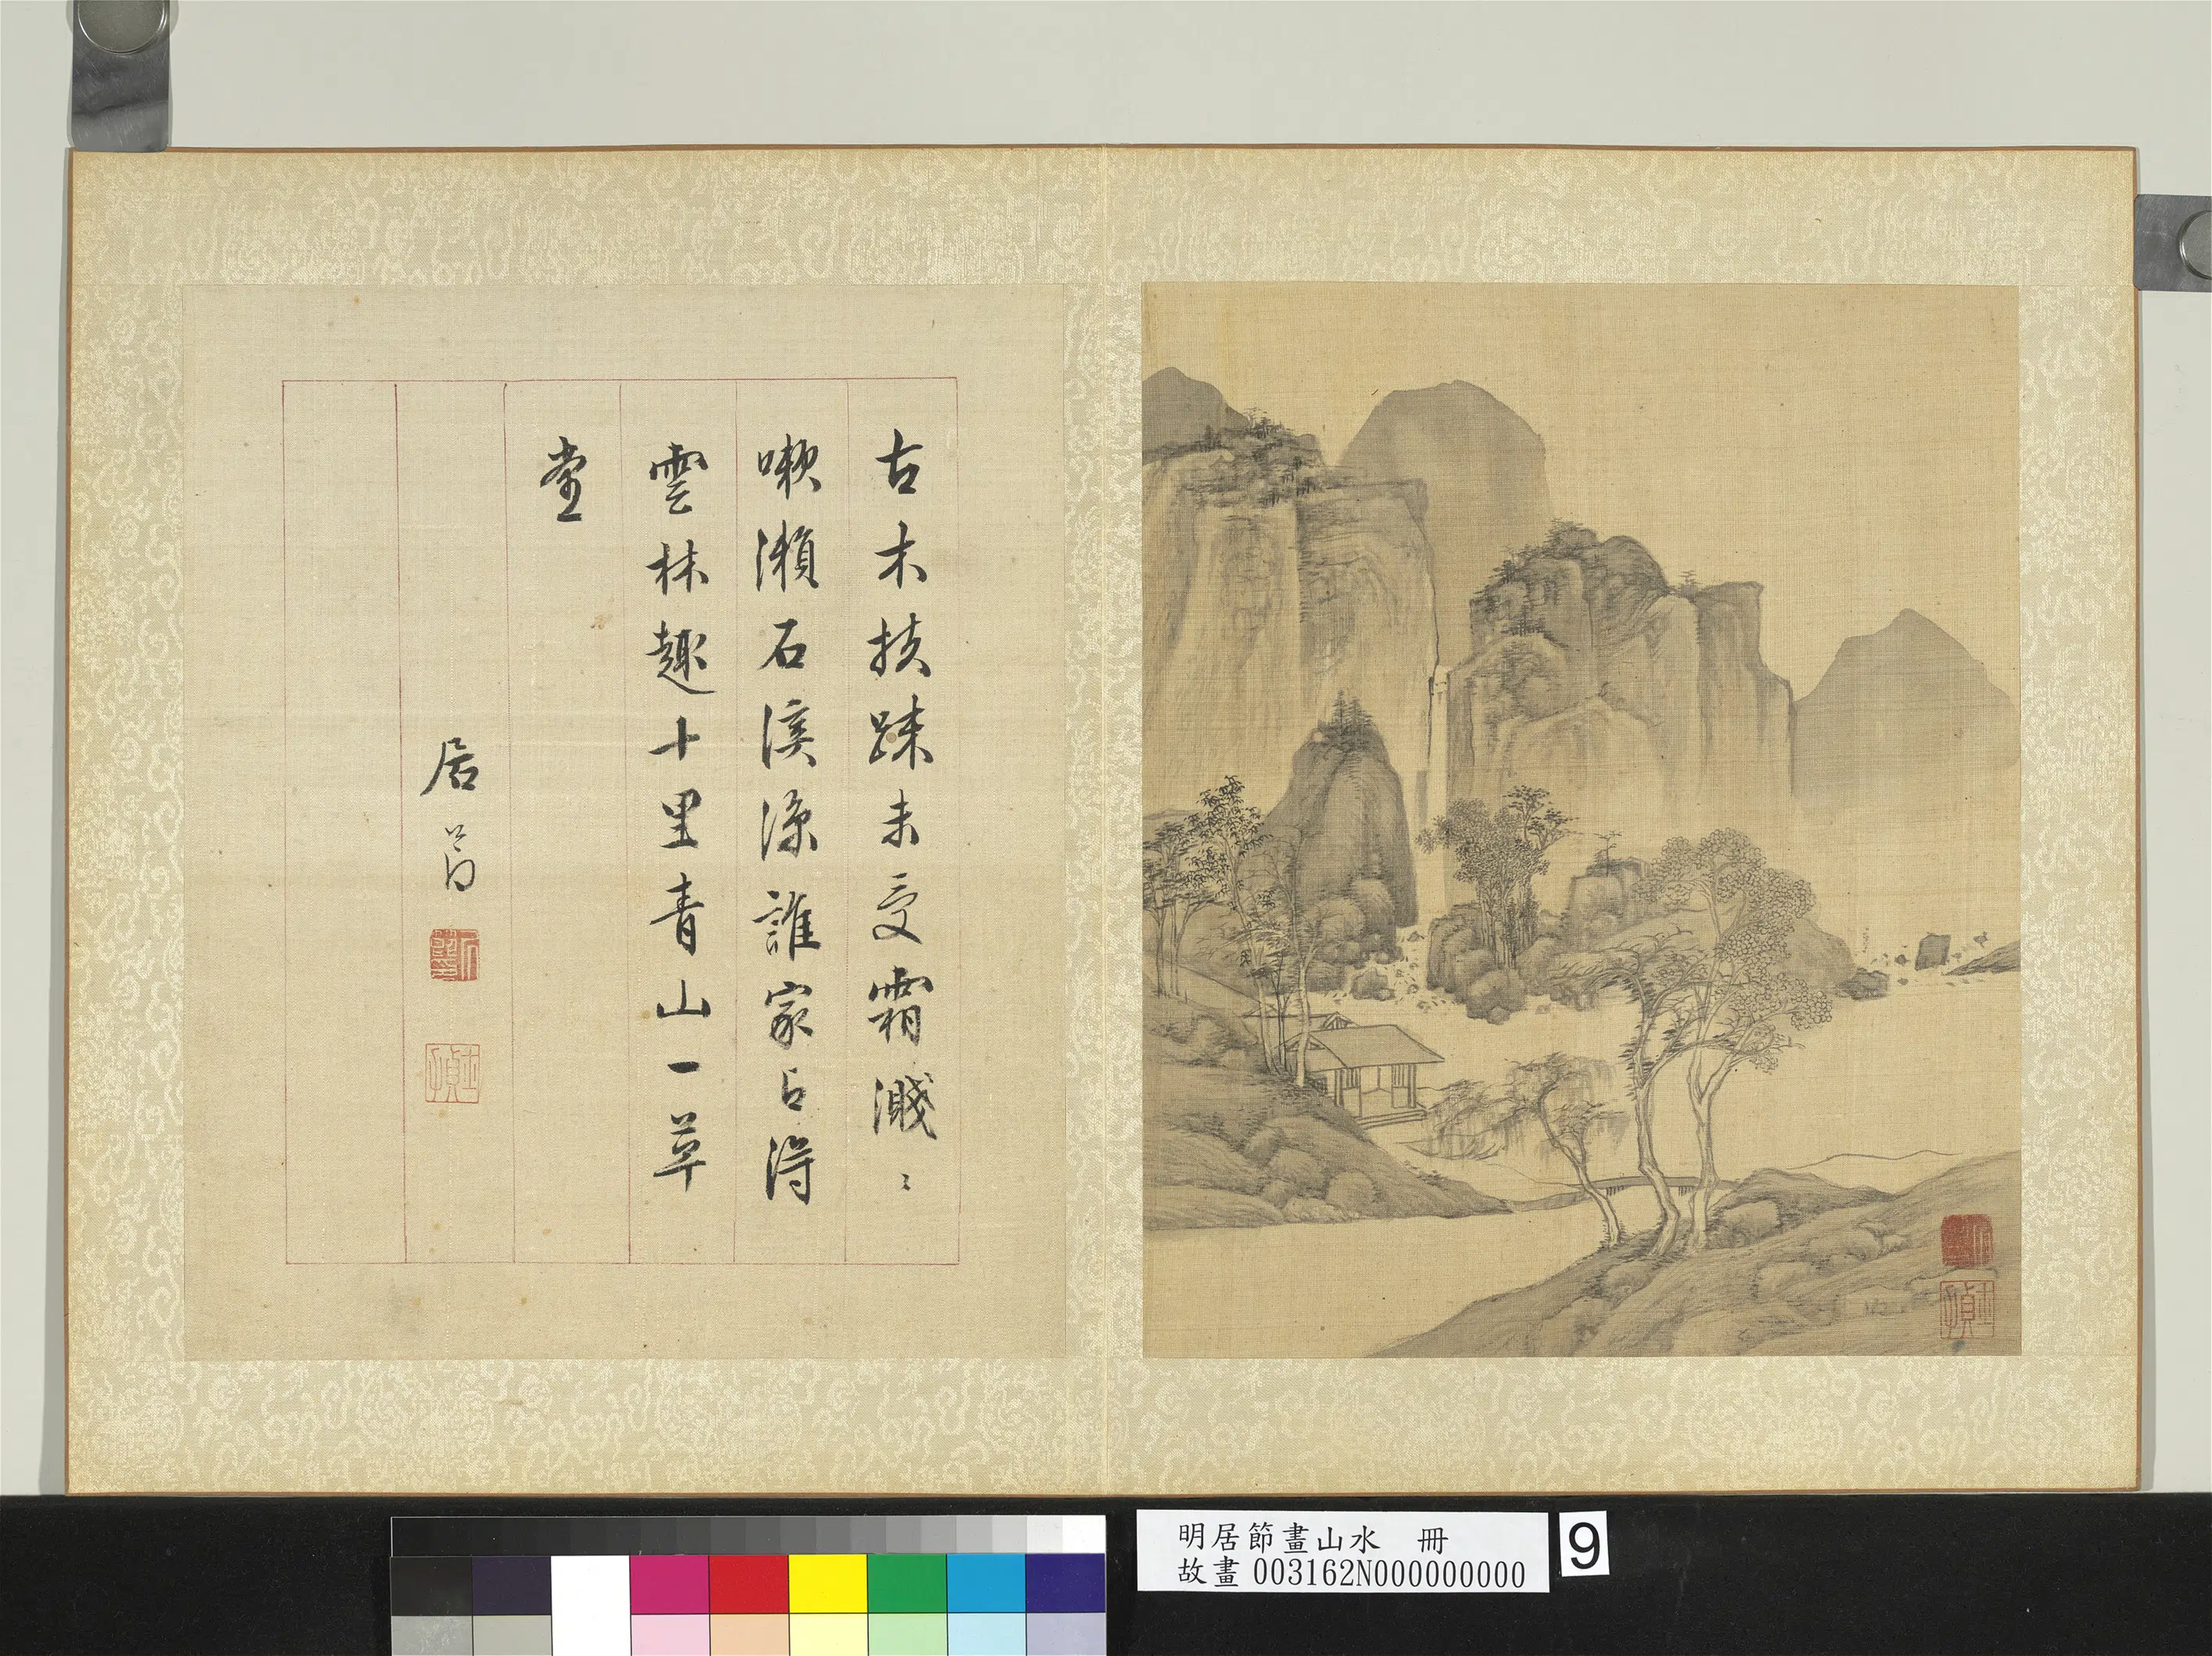 古木扶疎未受霜濺〻
嗽瀨石溪涼誰家占得
雲林趣十里青山一草
堂
居節
明居節畫山水 冊
故畫003162N000000000
9